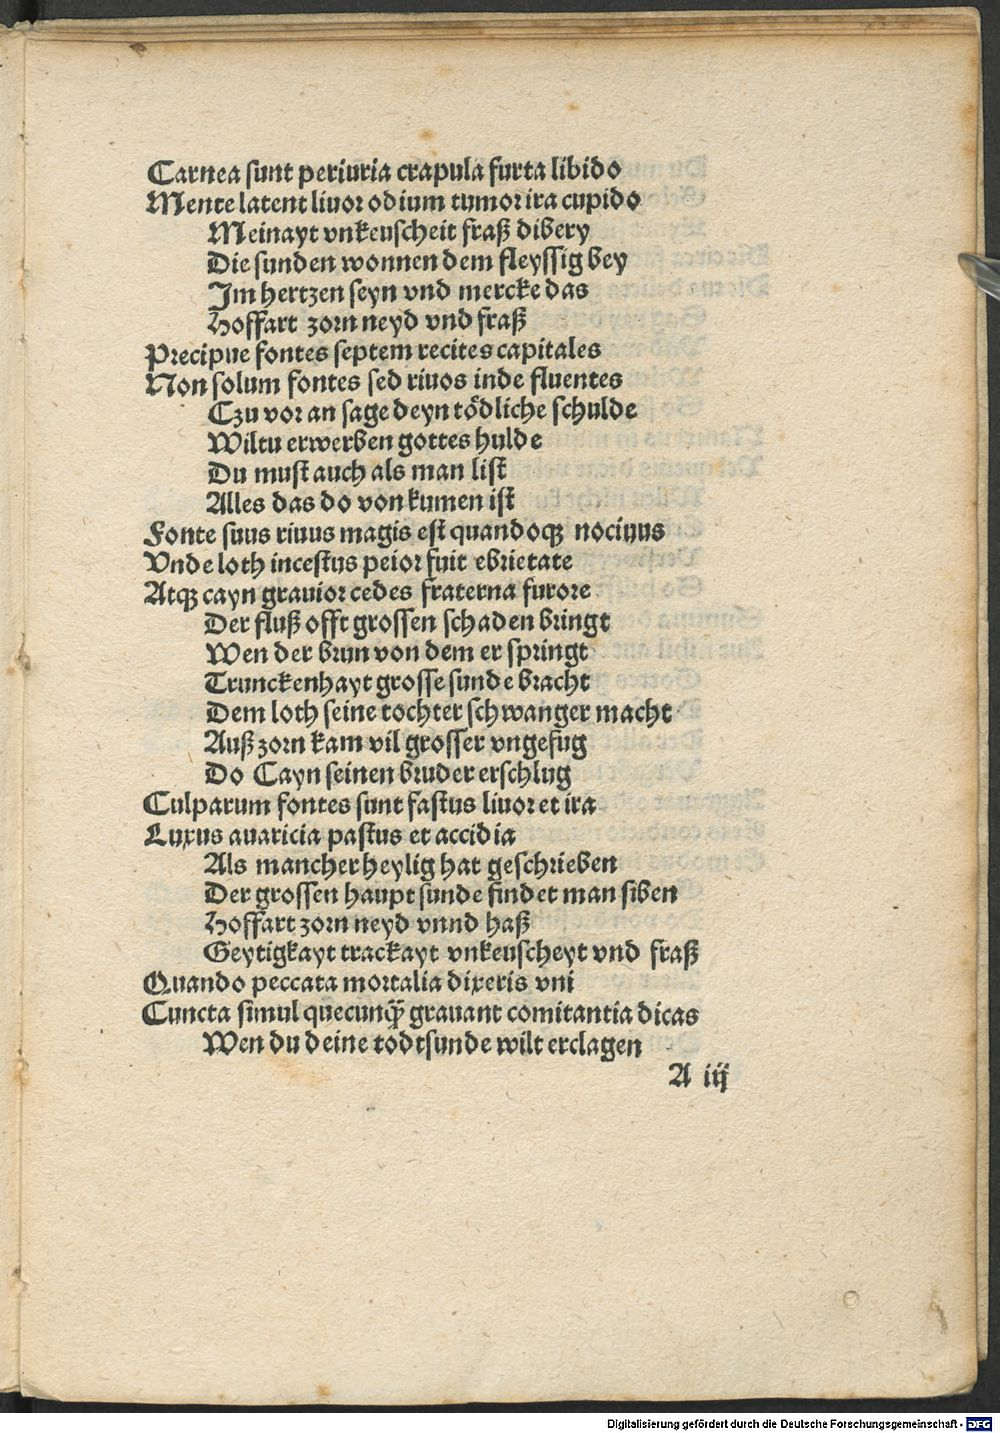 Carnea sunt periuria crapula furta libido
Mente latent liuor odium tumor ira cupido
Meinayt vnkeuscheit fraß dibery
Die sunden wonnen dem fleyssig bey
Im hertzen seyn vnd mercke das
Hoffart zorn neyd vnd fraß
Precipue fontes septem recites capitales
Non solum fontes sed riuos inde fluentes
Czu vor an sage deyn tödliche schulde
Wiltu erwerben gottes hulde
Du must auch als man list
Alles das do von kumen ist
Fonte suus riuus magis est quandoqꝫ nociuus
Vnde loth incestus peior fuit ebrietate
Atqꝫ cayn grauior cedes fraterna furore
Der fluß offt grossen schaden bringt
Wen der brun von dem er springt
Trunckenhayt grosse sunde bracht
Dem loth seine tochter schwanger macht
Auß zorn kam vil grosser vngefug
Do Cayn seinen bruder erschlug
Culparum fontes sunt fastus liuor et ira
Luxus auaricia pastus et accidia
Als mancher heylig hat geschrieben
Der grossen haupt sunde findet man siben
Hoffart zorn neyd vnnd haß
Geytigkayt trackayt vnkeuscheyt vnd fraß
Quando peccata mortalia dixeris vni
Cuncta simul quecunqꝫ̃ grauant comitantia dicas
Wen du deine todtsunde wilt erclagen
A iij
Digitalisierung gefördert durch die Deutsche Forschungsgemeinschaft - DFG